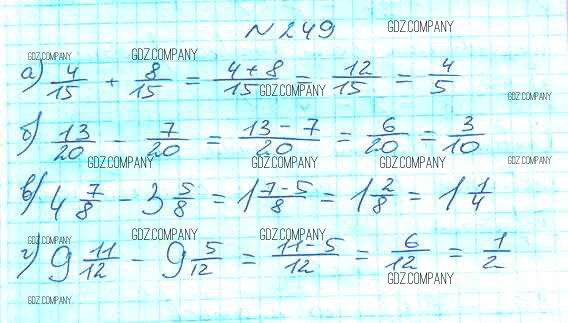 № 249
GDZ.COMPANY
GDZ.COMPANY GDZ.COMPANY
а) 4/15 + 8/15 = 4+8/15 = 12/15 = 4/5
GDZ.COMPANY GDZ.COMPANY
б) 13/20 - 7/20 = 13-7/20 = 6/20 = 3/10
GDZ.COMPANY GDZ.COMPANY GDZ.COMPANY GDZ.COMPANY
в) 4 7/8 - 3 5/8 = 1 7-5/8 = 1 2/8 = 1 1/4
GDZ.COMPANY GDZ.COMPANY GDZ.COMPANY
г) 9 11/12 - 9 5/12 = 11-5/12 = 6/12 = 1/2
GDZ.COMPANY
GDZ.COMPANY